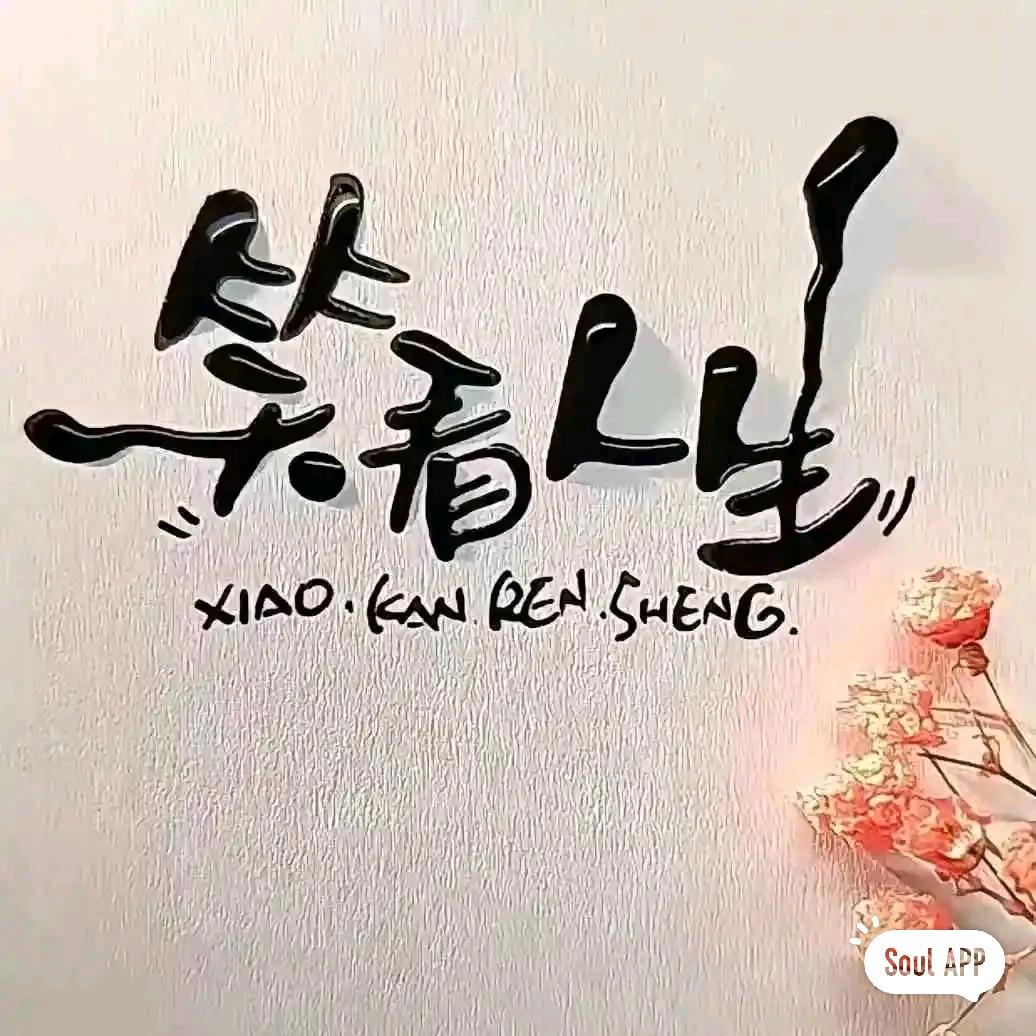 笑看人生
XIAO.KAN.REN.SHENG.
Soul APP